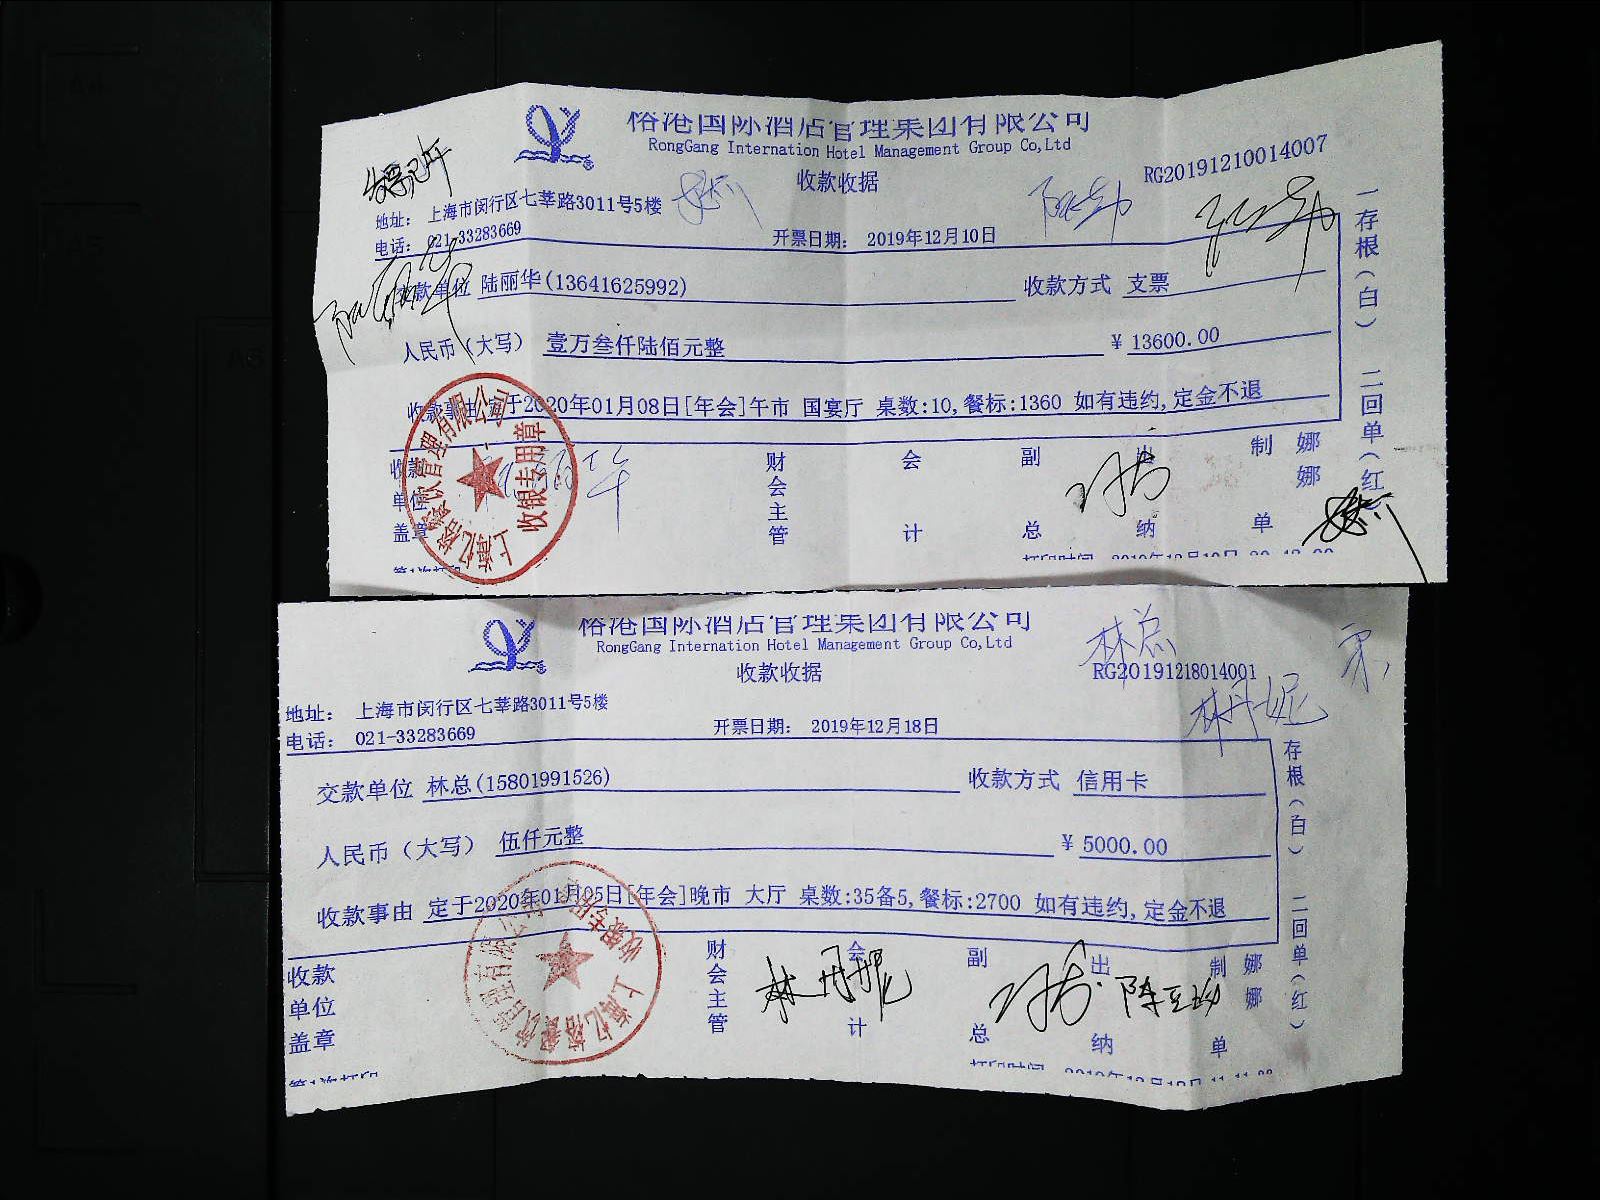 裕港国际酒店管理集团有限公司
RongGang Internation Hotel Management Group Co,Ltd
收款收据
RG20191210014007
地址： 上海市闵行区七莘路3011号5楼
电话： 021-33283669
开票日期： 2019年12月10日
交款单位 陆丽华(13641625992)
收款方式 支票
人民币（大写） 壹万叁仟陆佰元整
¥ 13600.00
收款事由 定于2020年01月08日[年会]午市 国宴厅 桌数:10,餐标:1360 如有违约,定金不退
收款单位盖章
财会主管
会计
副总
出纳
制单
娜娜
一存根（白） 二回单（红）
上海亿格餐饮管理有限公司
收银专用章
第1次打印
打印时间
裕港国际酒店管理集团有限公司
RongGang Internation Hotel Management Group Co,Ltd
收款收据
林总
RG20191218014001
林丹妮
地址： 上海市闵行区七莘路3011号5楼
电话： 021-33283669
开票日期： 2019年12月18日
交款单位 林总(15801991526)
收款方式 信用卡
人民币（大写） 伍仟元整
¥ 5000.00
收款事由 定于2020年01月05日[年会]晚市 大厅 桌数:35备5,餐标:2700 如有违约,定金不退
收款单位盖章
财会主管
林丹妮
会计
副总
出纳
制单
娜娜
存根（白） 二回单（红）
第1次打印
打印时间